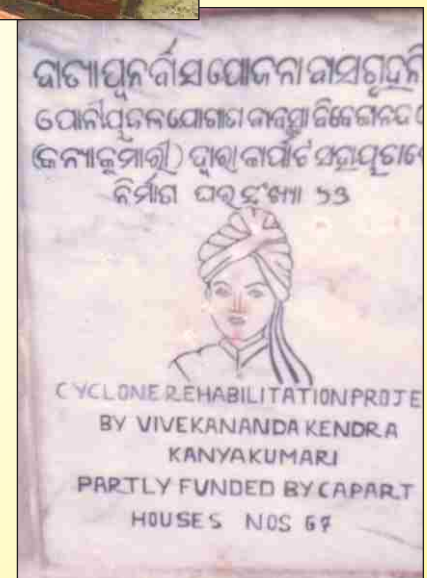 ବାତ୍ୟା ପୁନର୍ବାସ ଯୋଜନା ବାସଗୃହ
(କନ୍ୟାକୁମାରୀ) ଦ୍ଵାରା କାପାର୍ଟ
ନିର୍ମାଣ ଘର ସଂଖ୍ୟା
CYCLONE REHABILITATION PROJE
BY VIVEKANANDA KENDRA
KANYAKUMARI
PARTLY FUNDED BY CAPART
HOUSES NOS